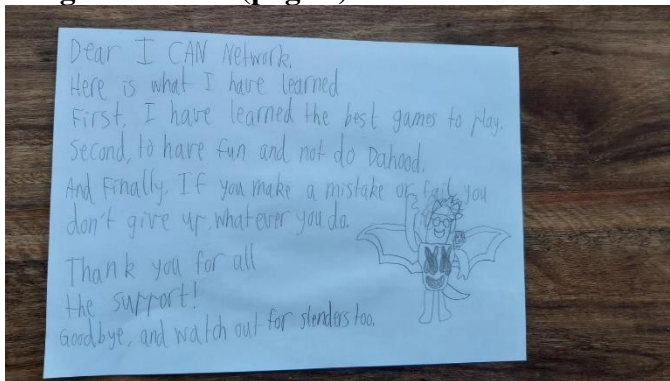 Dear I CAN Network.
Here is what I have learned
First. I have learned the best games to play.
Second, to have fun and not do Dahood.
And Finally. If you make a mistake or fail you
don't give up whatever you do.
Thank you for all
the support!
Goodbye, and watch out for slenders too.